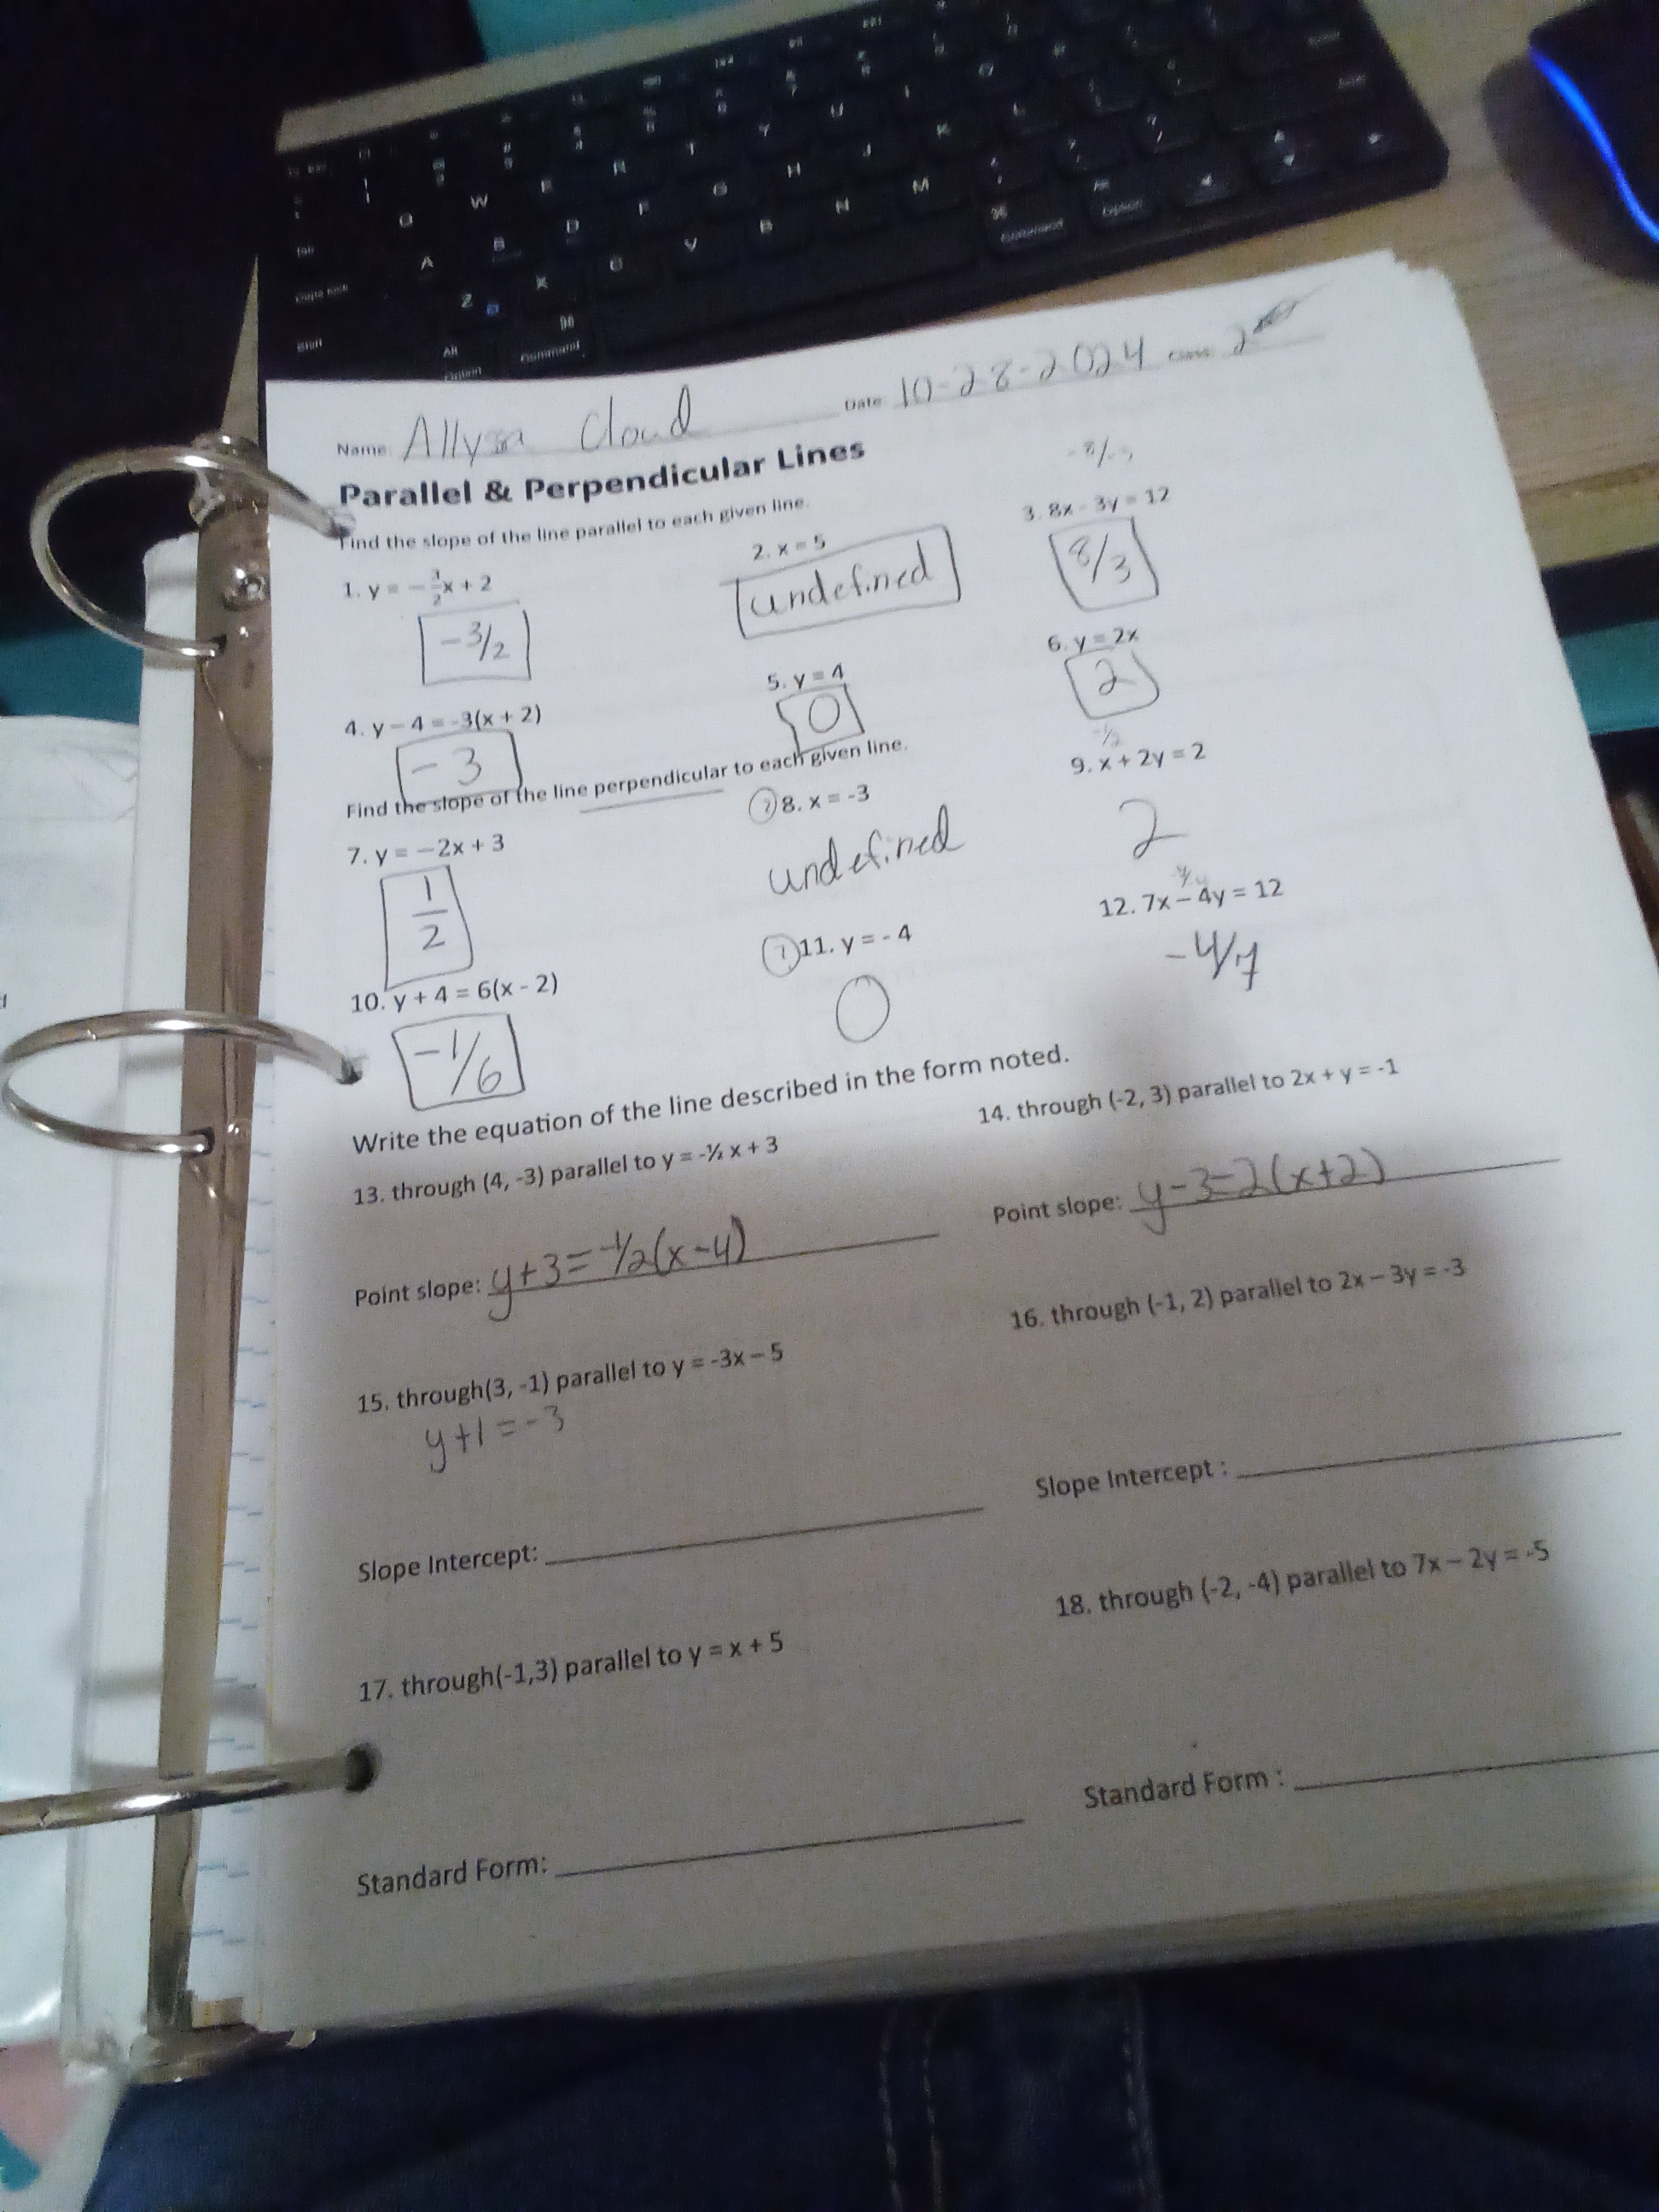 Name: Allyssa Cloud Date: 10-28-2024 Class: 2
Parallel & Perpendicular Lines
Find the slope of the line parallel to each given line.
1. y = -3/2x + 2
-3/2
2. x = 5
undefined
3. 8x - 3y = 12
8/3
4. y - 4 = -3(x + 2)
-3
5. y = 4
0
6. y = 2x
2
Find the slope of the line perpendicular to each given line.
7. y = -2x + 3
1/2
? 8. x = -3
undefined
-1/2
9. x + 2y = 2
2
10. y + 4 = 6(x - 2)
-1/6
? 11. y = - 4
0
12. 7x - 4y = 12
-4/7
Write the equation of the line described in the form noted.
13. through (4, -3) parallel to y = -½ x + 3
Point slope: y+3=-1/2(x-4)
14. through (-2, 3) parallel to 2x + y = -1
Point slope: y-3=-2(x+2)
15. through(3, -1) parallel to y = -3x - 5
y+1=-3
Slope Intercept:
16. through (-1, 2) parallel to 2x - 3y = -3
Slope Intercept :
17. through(-1,3) parallel to y = x + 5
Standard Form:
18. through (-2, -4) parallel to 7x - 2y = -5
Standard Form :
W
E
R
T
Y
U
A
D
F
G
H
J
K
L
Z
X
V
B
N
M
Shift
Alt
Option
Command
Command
Option